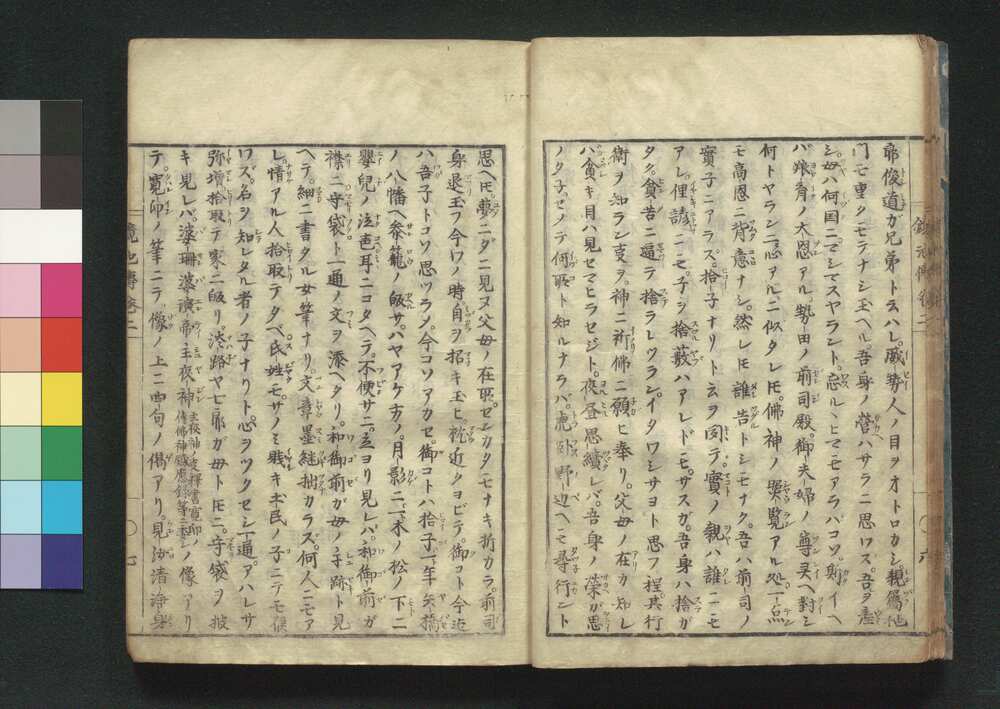 帝俊道ガ兄弟ト云ハレ。威勢人ノ目ヲオトロカシ。親屬他
門モ重クモテナシ玉ヘル。吾身ノ營ハサラニ思ロス。吾ヲ産
シ母ハ何国ニマシマスヤラント。忘ルヽヒマモアラバコソ。則イヘ
バ猿育ノ大恩アル勢田ノ前司殿。御夫婦ノ尊灵ヘ對シ
何トヤラン二心アルニ似タレ𪜈。佛神ノ照覧アル処。一点
モ高恩ニ背意ナシ。然レ𪜈誰告トシモナク。吾ハ前司ノ
實子ニアラス。拾子ナリト云ヲ聞テ。實ノ親ハ誰ニモ
アレ。俚諺ニモ。子ヲ捨藪ハアレドモ。サスガ。吾身ハ捨ガ
タク。貧苦ニ逼テ捨ラレツラン。イタワシサヨト思フ程。其行
衛ヲ知ラン㕝ヲ。神ニ祈佛ニ願ヒ奉リ。父母ノ在カ知レ
ハ貧キ目ハ見セマヒラセジト。夜昼思續レバ。吾身ノ榮ガ思
ノタ子ゼノテ何𠩄ト知ルナラバ。鹿臥野辺ヘモ尋行ント
思ヘ𪜈。夢ニダニ見ヌ父母ノ在𠩄。センカタモナキ折カラ。前司
身退玉フ今ワノ時。自ヲ招キ玉ヒ。枕近クヨビテ。御コト今迄
ハ吾子トコソ思ツラメ。今コソアカセ。御コトハ拾子。年矢橋
ノ八幡ヘ参籠ノ皈サ。ハヤアケ方ノ月影ニ。一木ノ松ノ下ニ
嬰兒ノ泣声耳ニコタヘテ。不便サニ。立ヨリ見レバ。和御前ガ
襟ニ守袋ト一通ノ文ヲ添ヘタリ。和御前ガ母ノ手跡ト見
ヘテ。細ニ書タル女筆ナリ。文章墨継拙カラズ。何人ニモア
レ。情アル人拾取テタベ。氏姓モサノミ賎キ土民ノ子ニテモ候
ワズ。名ヲ知レタル者ノ子ナリト。心ヲツクセシ一通。アハレサ
弥増拾取テ家ニ皈リ。淡路ヤ七郎ガ母ト𪜈ニ。守袋ヲ披
キ見レバ。婆珊婆演帝主夜神ノ像アリ
テ。寛印ノ筆ニテ。像ノ上ニ四句ノ偈アリ。見汝清淨身